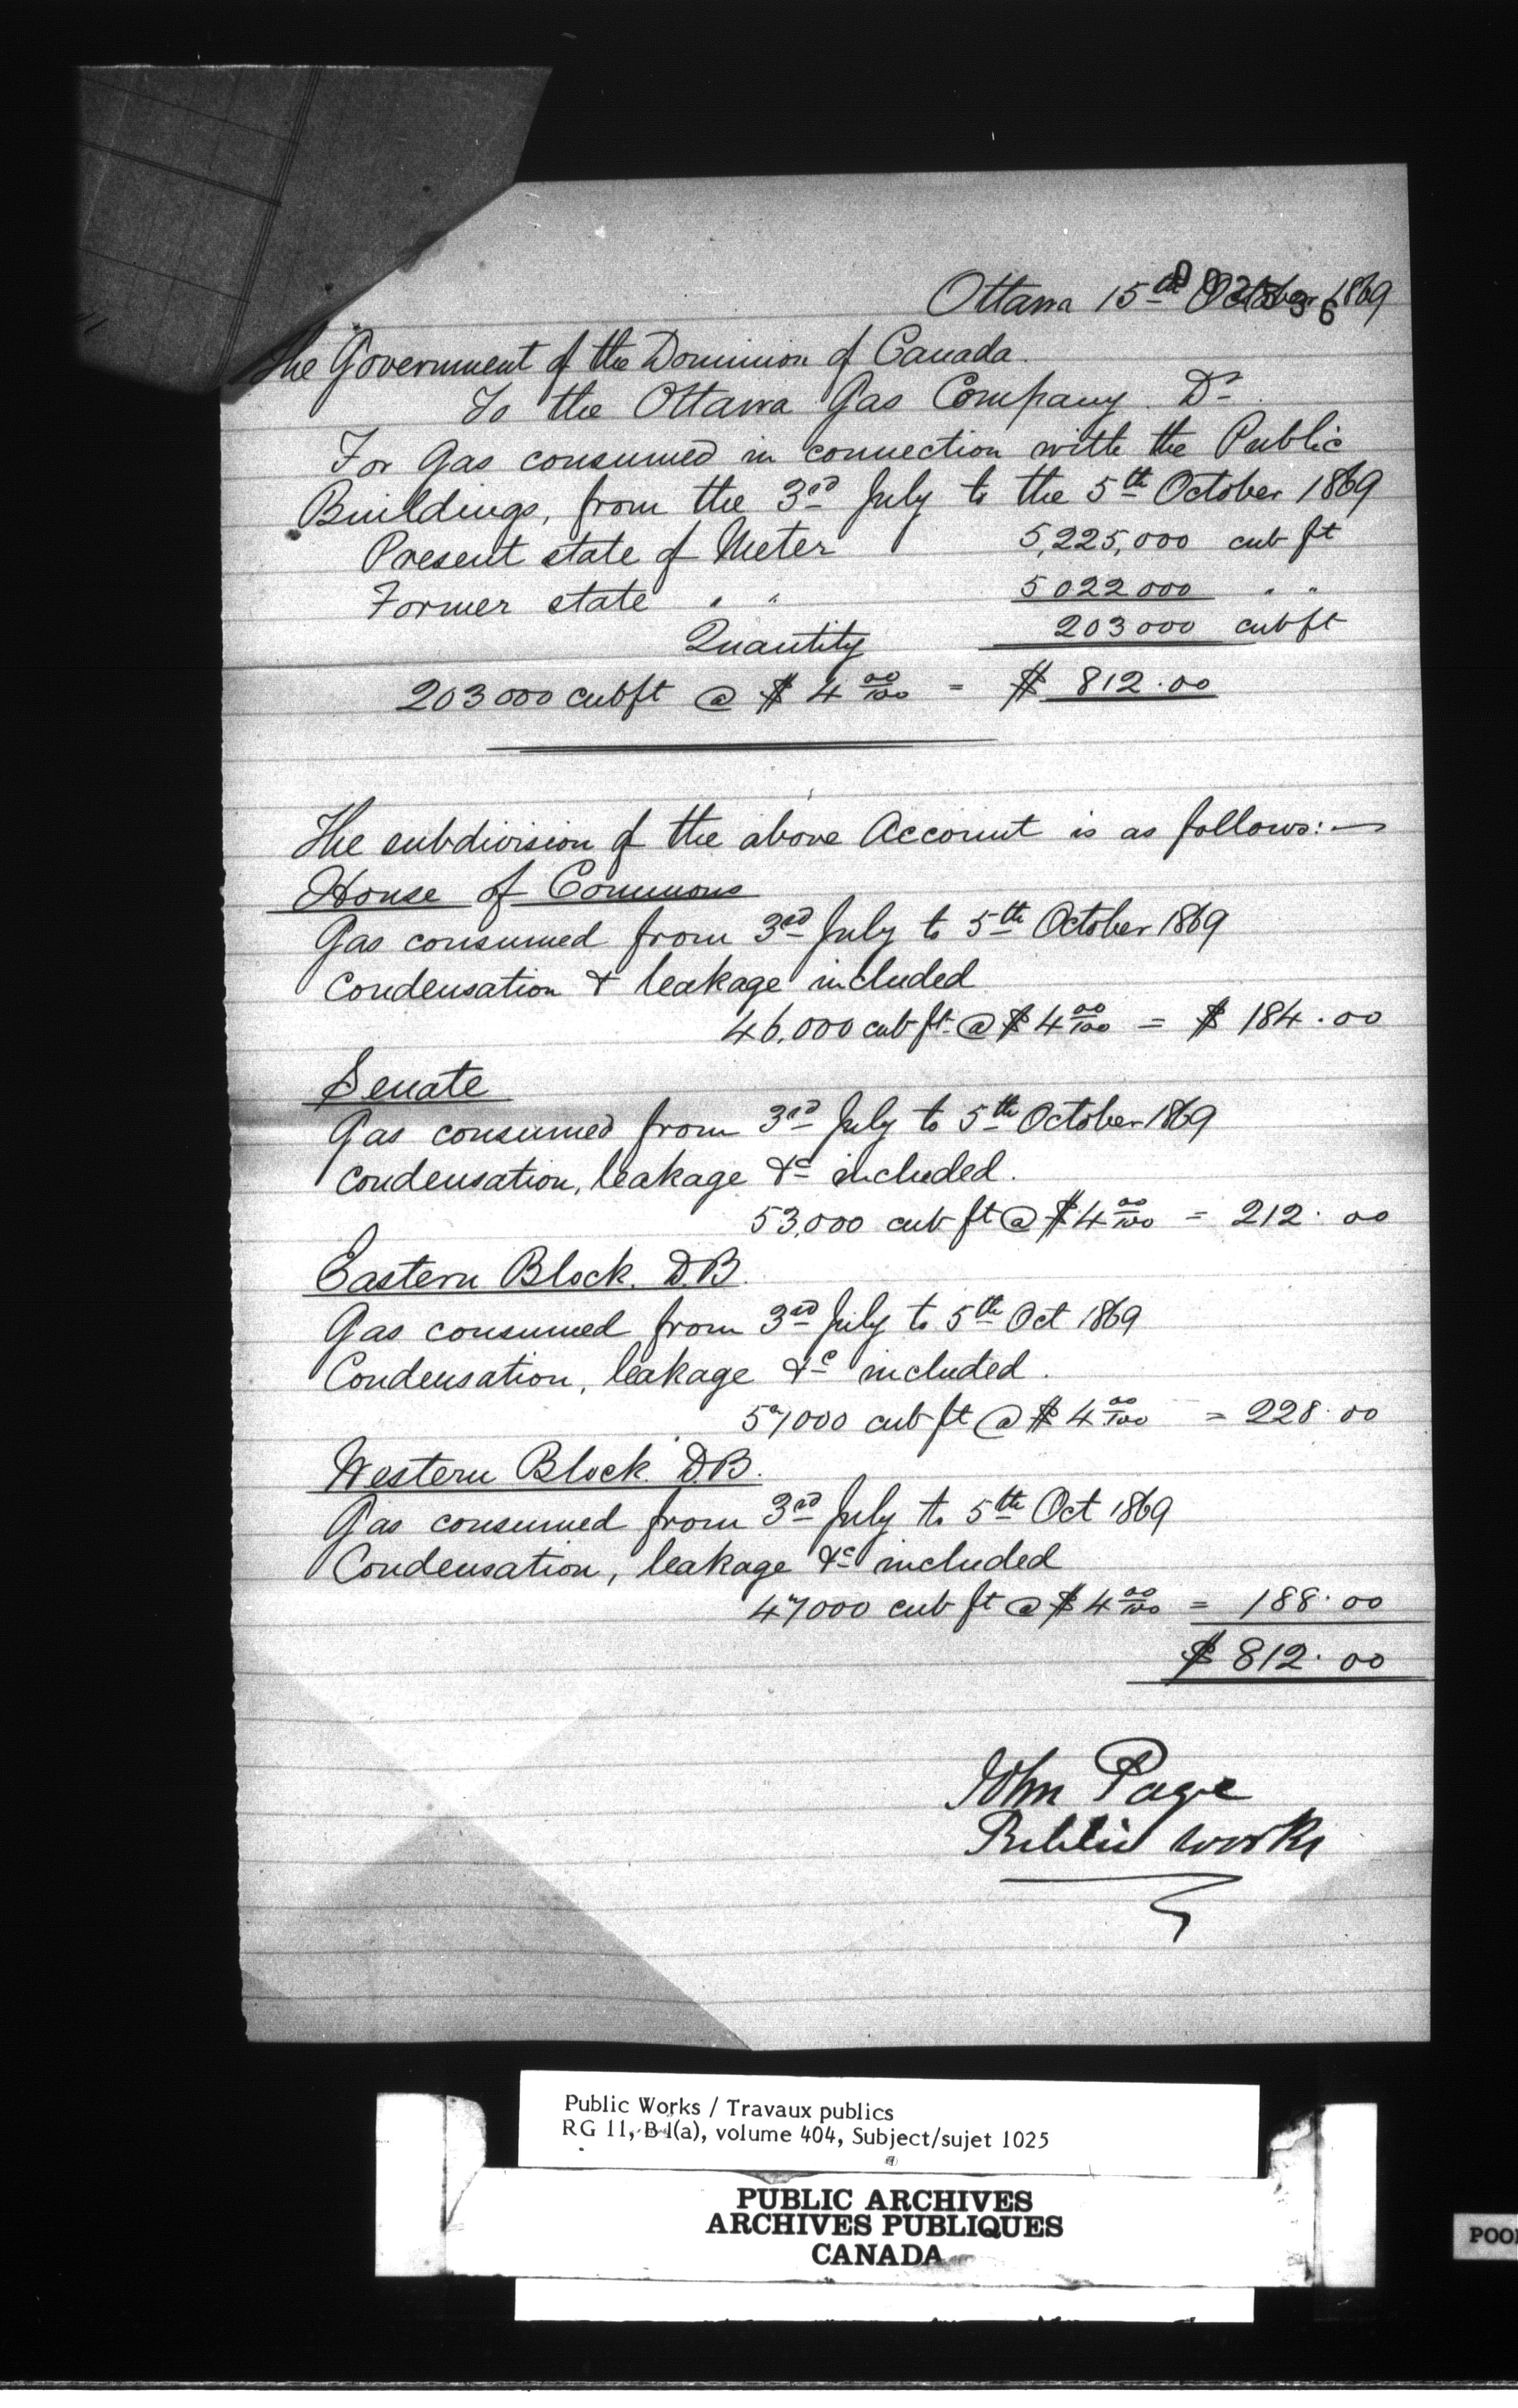 Ottawa 15th October 1869
The Government of the Dominion of Canada.
To the Ottawa Gas Company Dr.
For Gas consumed in connection with the Public
Buildings, from the 3rd July to the 5th October 1869
Present state of Meter 5,225,000 cub ft
Former state " " 5022000 " "
Quantity 203000 cub ft
203000 cub ft @ $ 4 00/100 = $ 812.00
The subdivision of the above Account is as follows:—
House of Commons
Gas consumed from 3rd July to 5th October 1869
Condensation & leakage included
46,000 cub ft @ $ 4 00/100 = $ 184.00
Senate
Gas consumed from 3rd July to 5th October 1869
Condensation, leakage &c included.
53,000 cub ft @ $ 4 00/100 = 212.00
Eastern Block. D.B.
Gas consumed from 3rd July to 5th Oct 1869
Condensation, leakage &c included.
57000 cub ft @ $ 4 00/100 = 228.00
Western Block D.B.
Gas consumed from 3rd July to 5th Oct 1869
Condensation, leakage &c included
47000 cub ft @ $ 4 00/100 = 188.00
$ 812.00
John Page
Public Works
Public Works / Travaux publics
RG 11, B 1(a), volume 404, Subject/sujet 1025
PUBLIC ARCHIVES
ARCHIVES PUBLIQUES
CANADA